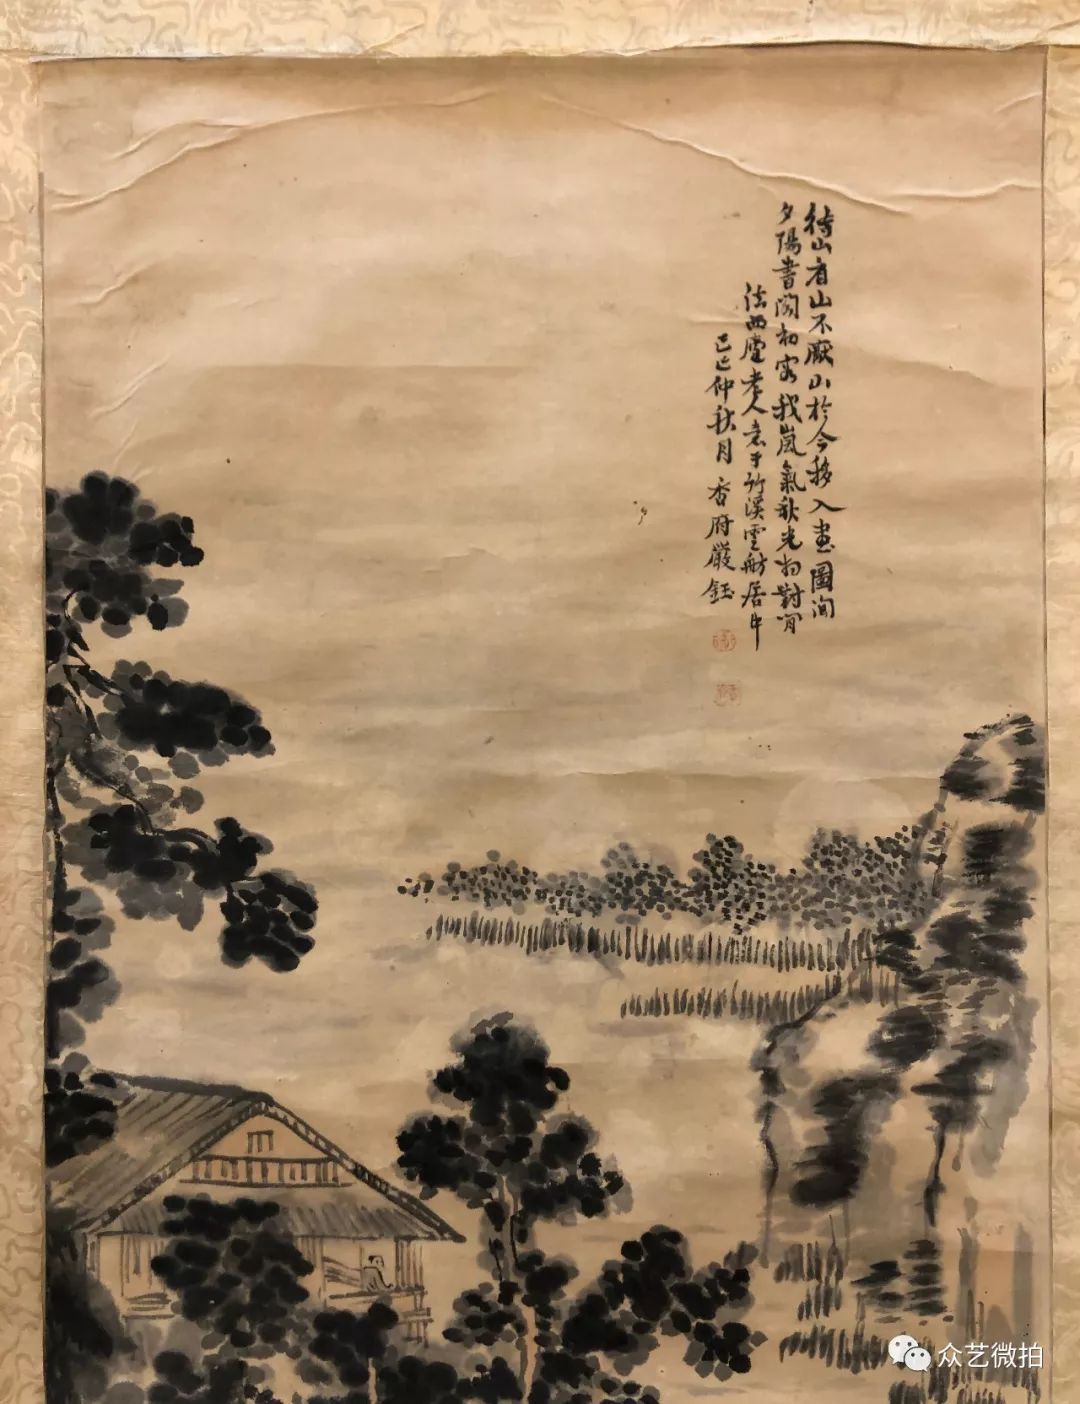 待山看山不厭山於今移入畫圖間
夕陽書閣初客我嵐氣秋光相對閒
法西廬老人意于竹溪雲舫居中
己巳仲秋月 香府嚴鈺
众艺微拍